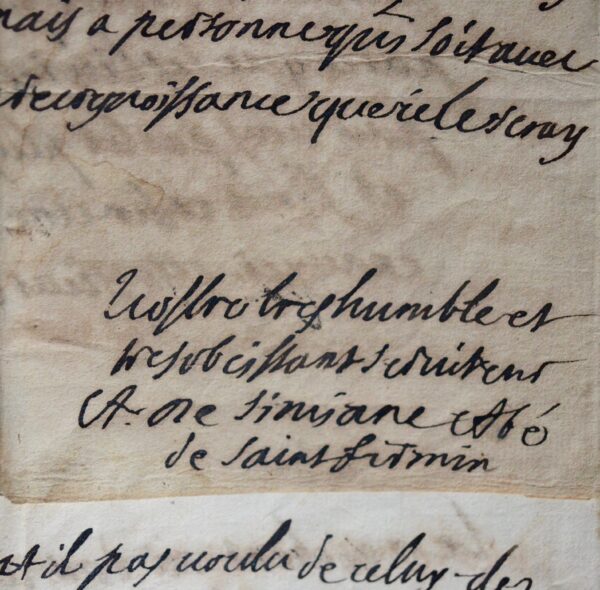 mais a personne qui soit avec
recognoissance que ie le seray
Vostre tres humble et
tres obeissant serviteur
A. de Simiane Abé
de saint firmin
il pas voulu de celuy des